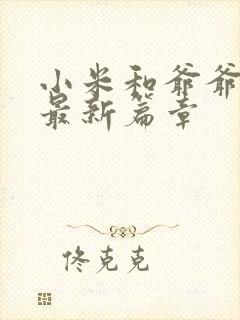 小米和爷爷
最新篇章
佟克克